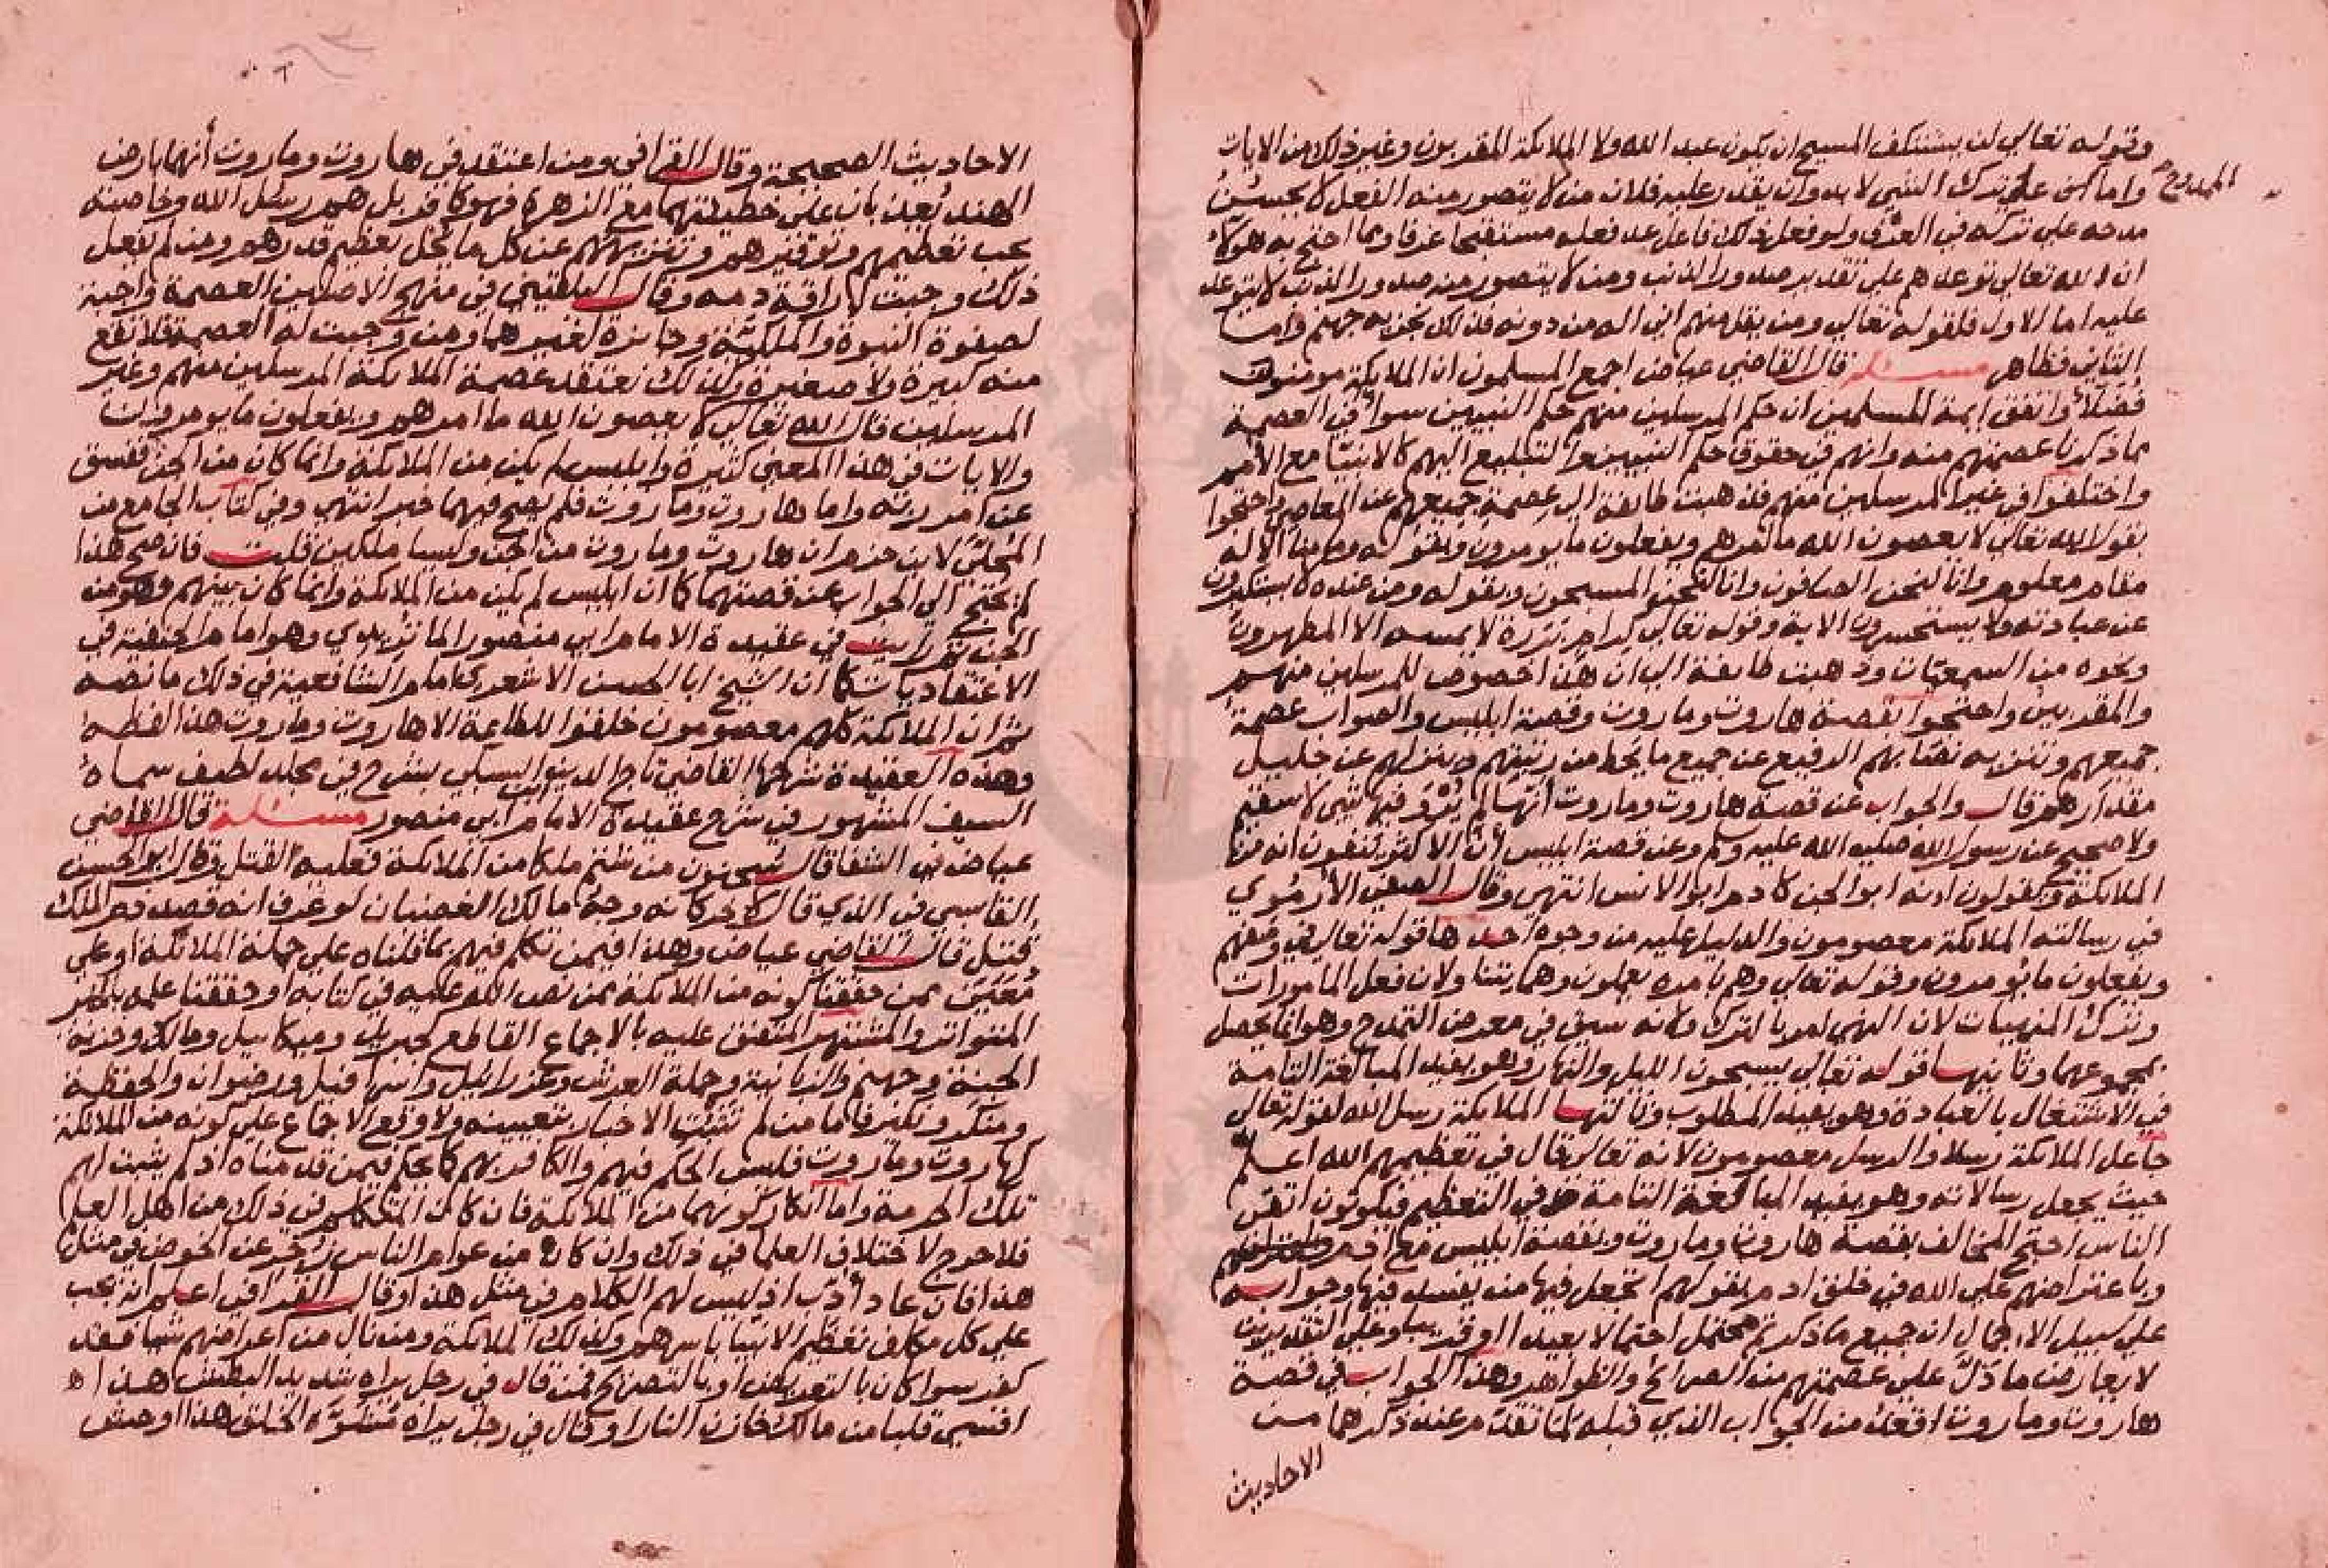 وقوله تعالي لن يستنكف المسيح ان يكون عبد الله ولا الملائكة المقربون وغير ذلك من الايات
الممدوح
واما ان علي ترك الشي لا بد وان يقدر عليه فلان من لا يتصور منه الفعل لا يحسن
مدحه علي تركه في العرف ولو فعل ذلك فاعل عد فعله مستقبحا عرفا ومما احتج به هولاء
ان الله تعالي توعدهم علي تقدير صدور الذنب ومن لا يتصور منه صدور الذنب لا يتوعد
عليه اما الاول فلقوله تعالي ومن يقل منهم اني اله من دونه فذلك نجزيه جهنم واما
الثاني فظاهر مسئلة قال القاضي عياض اجمع المسلمون ان الملايكة مومنون
فضلا واتفق ايمة المسلمين ان حكم المرسلين منهم حكم النبيين سوا في العصمة
مما ذكرنا عصمتهم منه وانهم في حقوق حكم النبيين والتبليغ اليهم كالانبيا مع الامم
واختلفوا في غير المرسلين منهم فذهبت طايفة الي عصمة جميعهم عن المعاصي واحتجوا
بقوله الله تعالي لا يعصون الله ما امرهم ويفعلون ما يومرون وبقوله وما منا الا له
مقام معلوم وانا لنحن الصافون وانا لنحن المسبحون وبقوله ومن عنده لا يستكبرون
عن عبادته ولا يستحسرون الاية وقوله تعالي كرام بررة لا يمسه الا المطهرون
ونحوه من السمعيات وذهبت طايفة الي ان هذا خصوص للمرسلين منهم
والمقربين واحتجوا بقصة هاروت وماروت وقصة ابليس والصواب عصمة
جميعهم وتنزيه نصابهم الرفيع عن جميع ما يحط من رتبتهم وينزلهم عن جليل
مقدارهم قال والجواب عن قصة هاروت وماروت انها لم يرو فيها شي لا سقيم
ولا صحيح عن رسول الله صلي الله عليه وسلم وعن قصة ابليس ان الاكثر ينفون انه من
الملائكة ويقولون انه ابو الجن كادم ابو الانس انتهي وقال الصفي الارموي
في رسالته الملائكة معصومون والدليل عليه من وجوه احدها قوله تعالي في وصفهم
ويفعلون ما يومرون وقوله تعالي وهم بامره يعملون وهما يتناولان فعل المامورات
وترك المنهيات لان النهي امر بالترك ولانه سيق في معرض التمدح وهو انما يحصل
بمجموعهما وثانيها قوله تعالي يسبحون الليل والنهار وهو يفيد المبالغة التامة
في الاشتغال بالعبادة وهو يفيد المطلوب وثالثها الملائكة رسل الله لقوله تعالي
جاعل الملائكة رسلا والرسل معصومون لانه تعالي قال في تعظيمهم الله اعلم
حيث يجعل رسالاته وهو يفيد المبالغة التامة في التعظيم فيكونون اتقي
الناس احتج المخالف بقصة هاروت وماروت وبقصة ابليس مع ادم
وباعتراضهم علي الله في خلق ادم بقولهم اتجعل فيها من يفسد فيها وجوابه
علي سبيل الاجمال ان جميع ما ذكرتم محتمل احتمالا بعيدا او قريبا وعلي التقديرين
لا يعارض ما دل علي عصمتهم من الصرائح والظواهر وهذا الجواب في قصة
هاروت وماروت اقعد من الجواب الذي قبله لما تقدم عند ذكرهما من
الاحاديث
الاحاديث الصحيحة وقال القرافي ومن اعتقد في هاروت وماروت أنهما بارض
الهند يعذبان علي خطيئتهما مع الزهرة فهو كافر بل هم رسل الله وخاصته
يجب تعظيمهم وتوقيرهم وتنزيههم عن كل ما يخل بعظيم قدرهم ومن لم يفعل
ذلك وجبت اراقة دمه وقال البلقيني في منهج الاصلين العصمة واجبة
لصفوة النبوة والملكية وجائزة لغيرهما ومن وجبت له العصمة فلا تقع
منه كبيرة ولا صغيرة وكذلك نعتقد عصمة الملائكة المرسلين منهم وغير
المرسلين قال الله تعالي لا يعصون الله ما امرهم ويفعلون ما يومرون
والايات في هذا المعني كثيرة وابليس لم يكن من الملائكة وانما كان من الجن ففسق
عن امر ربه واما هاروت وماروت فلم يصح فيهما خبر انتهي وفي كتاب الجامع من
المحلي لابن حزم ان هاروت وماروت من الجن وليسا ملكين قلت فان صح هذا
لم يحتج الي الجواب عن قصتهما كما ان ابليس لم يكن من الملائكة وانما كان بينهم وهو من
الجن ثم رايت في عقيدة الامام ابي منصور الماتريدي وهو امام الحنفية في
الاعتقاديات كما ان الشيخ ابا الحسن الاشعري امام الشافعية في ذلك ما نصه
ثم ان الملائكة كلهم معصومون خلقوا للطاعة الا هاروت وماروت هذا لفظه
وهذه العقيدة شرحها القاضي تاج الدين ابن السبكي بشرح في مجلد لطيف سماه
السيف المشهور في شرح عقيدة الامام ابي منصور مسئلة قال القاضي
عياض في الشفا قال سحنون من شتم ملكا من الملائكة فعليه القتل وقال ابو الحسن
القابسي في الذي قال لاخر كانه وجه مالك الغضبان لو عرف انه قصد ذم الملك
قتل قال القاضي عياض وهذا فيمن تكلم فيهم بما قلناه علي جملة الملائكة او علي
معين ممن حققنا كونه من الملائكة ممن نص الله عليه في كتابه او حققنا علمه بالخبر
المتواتر والمشتهر المتفق عليه بالاجماع القاطع كجبريل وميكائيل ومالك وخزنة
الجنة وجهنم والزبانية وحملة العرش وعزرائيل واسرافيل ورضوان والحفظة
ومنكر ونكير فاما من لم تثبت الاخبار بتعيينه ولا وقع الاجماع علي كونه من الملائكة
كهاروت وماروت فليس الحكم فيهم والكافر بهم كالحكم فيمن قدمناه اذ لم يثبت لهم
تلك الحرمة واما انكار كونهما من الملائكة فان كان المتكلم في ذلك من اهل العلم
فلا حرج لاختلاف العلما في ذلك وان كان من عوام الناس زجر عن الخوض في مثل
هذا فان عاد أدب اذ ليس لهم الكلام في مثل هذا وقال القرافي اعلم انه يجب
علي كل مكلف تعظيم الانبيا باسرهم وكذلك الملائكة ومن نال من اعراضهم شيا فقد
كفر سوا كان بالتعريض او بالتصريح فمن قال في رجل يراه شديد البطش هذا
اقسي قلبا من مالك خازن النار او قال في رجل يراه مشوه الخلق هذا اوحش